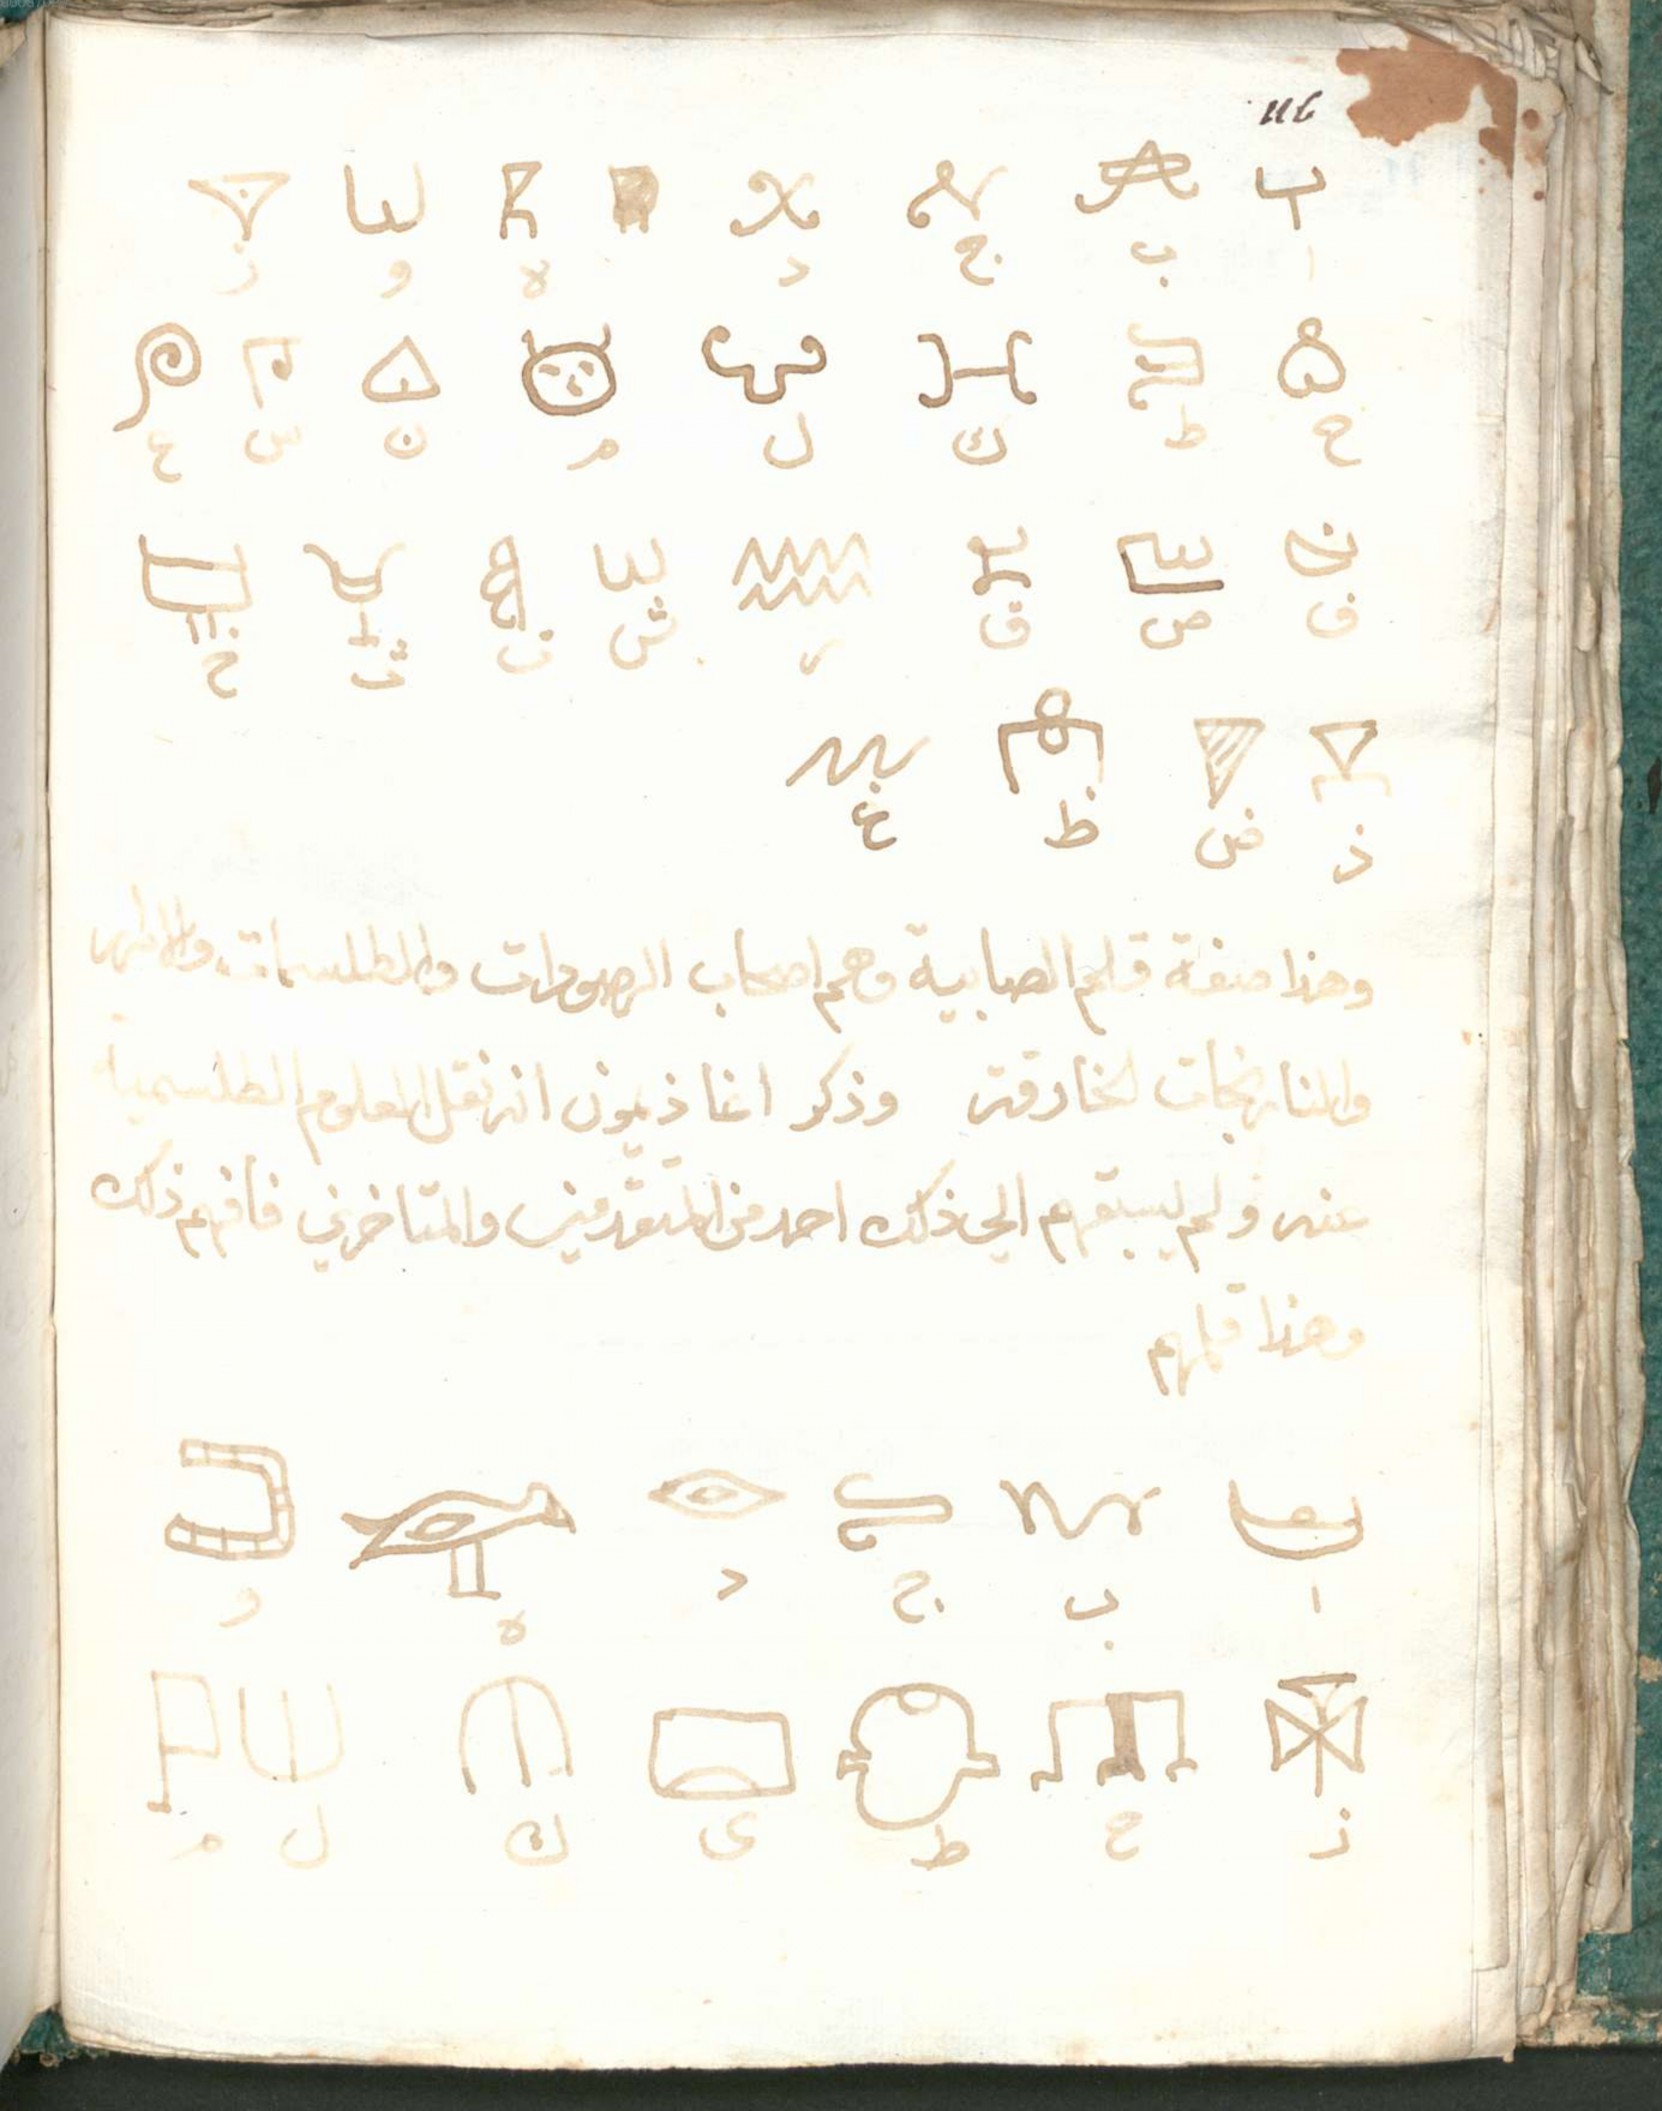 116
ا ب ج د ه و ز
ح ط ك ل م ن س ع
ف ص ق ر ش ت ث خ
ذ ض ظ غ
وهذا صفة قلم الصابية وهم اصحاب الرصودات والطلسمات
والنارنجات الخارقة وذكر اغاذيمون انه نقل العلوم الطلسمية
عنه ولم يسبقهم الى ذلك احد من المتقدمين والمتاخرين فافهم ذلك
وهذا قلمهم
ا ب ج د ه و
ز ح ط ى ك ل م